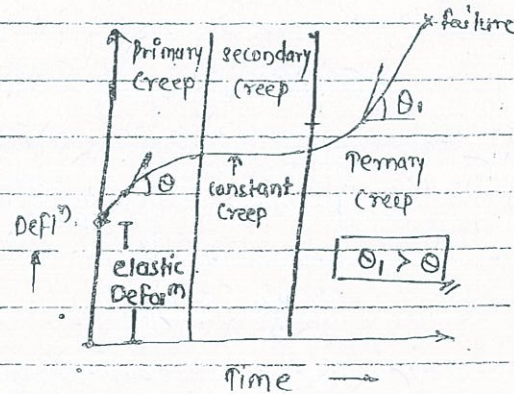 failure
primary
creep
secondary
creep
θ₁
θ
constant
creep
Ternary
creep
Defl^n).
elastic
Defor^(n)
θ₁ > θ
Time